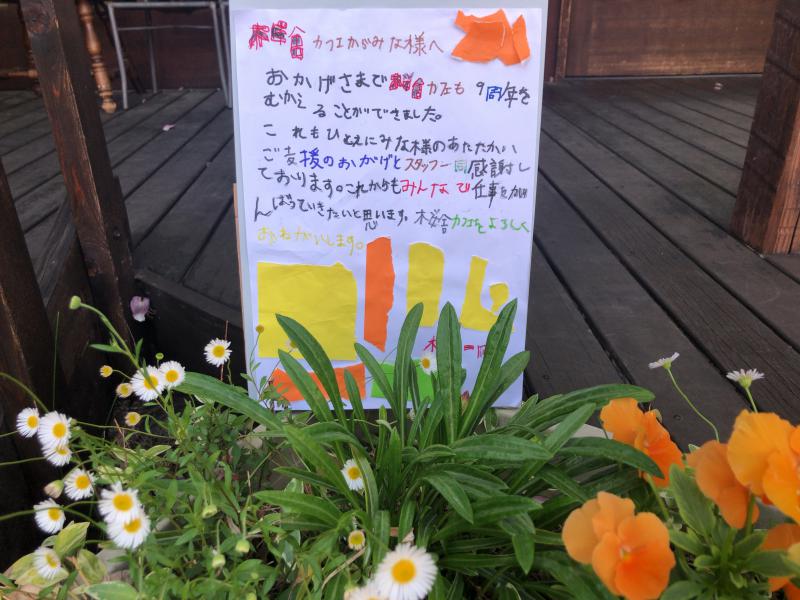 カフエかがみな様へ
おかげさまで カフェも 9周年を
むかえることができました。
これもひとえにみな様のあたたかい
ご支援のおかげとスタッフ一同感謝し
ております。これからもみんなで仕事をがん
ばっていきたいと思います。 カフェをよろしく
おねがいします。